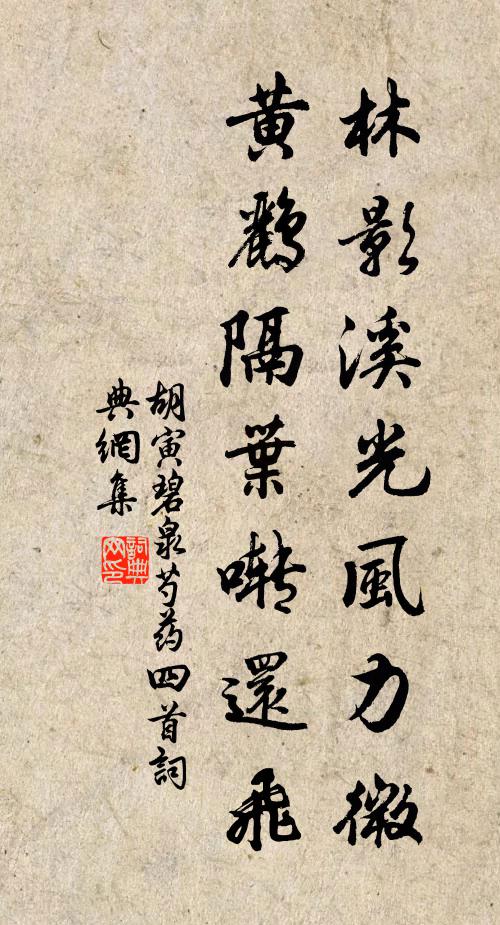 林影溪光風力微
黃鸝隔葉囀還飛
胡寅碧泉芍药四首詞
典網集
詞典
网印